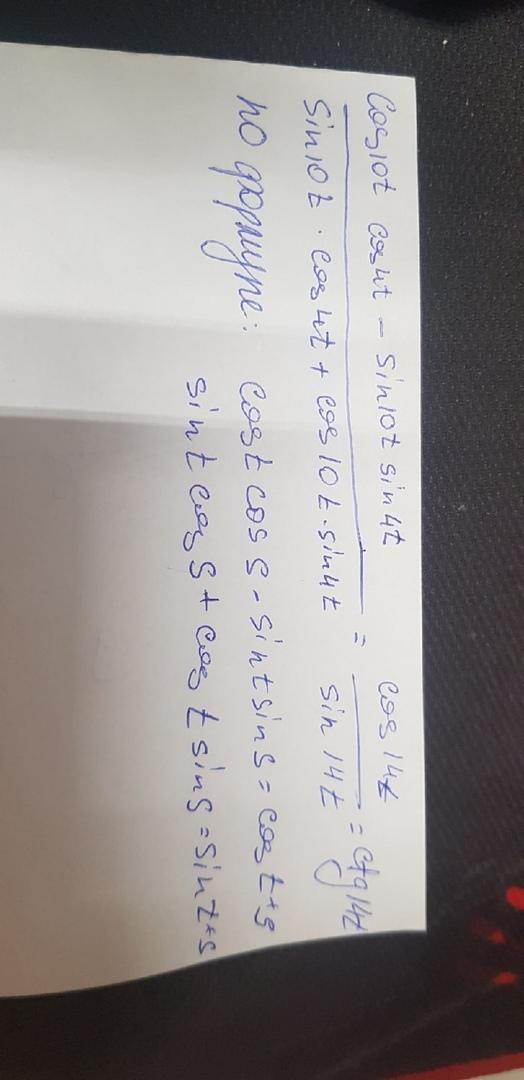 cos10t cos4t - sin10t sin4t
sin10t · cos4t + cos10t · sin4t
=
cos14t
sin14t
= ctg14t
по формуле: cost cos s - sint sin s = cos t+s
sin t cos s + cos t sin s = sin t+s